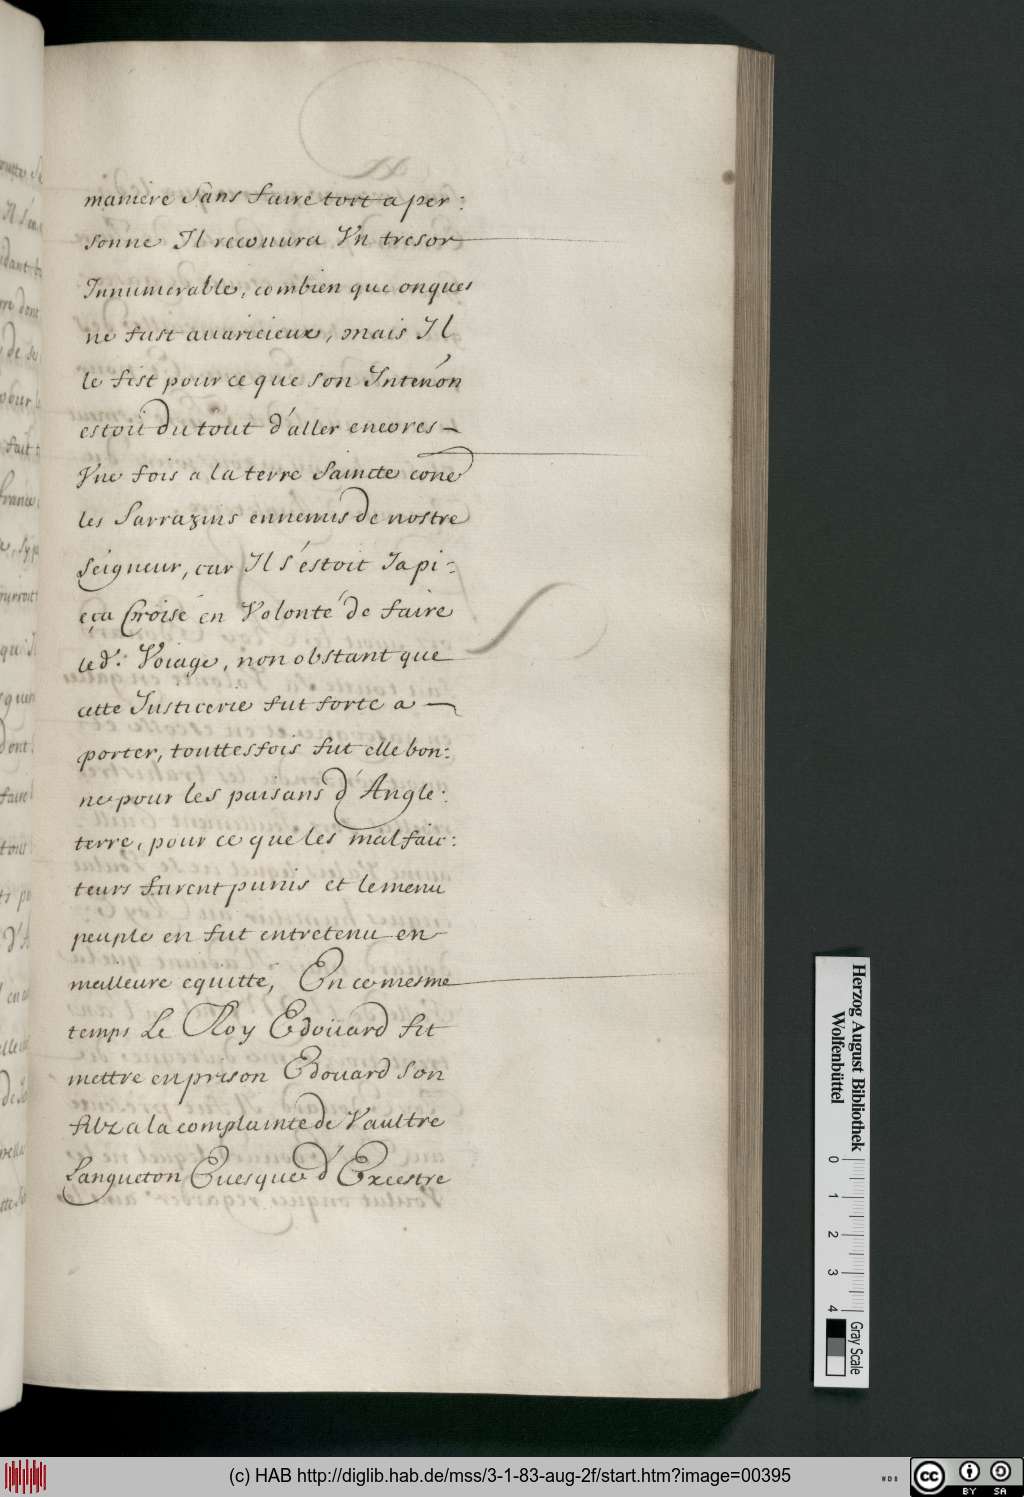 maniere sans faire tort a per:
sonne Il recouura Vn tresor
Innumerable, combien que onques
ne fust auaricieux, mais Il
le fist pour ce que son Intenōn
estoit du tout d'aller encores
Vne fois a la terre Saincte conē
les Sarrazins ennemis de nostre
Seigneur, car Il s'estoit Iapi:
eça Croisé en Volonté de faire
led.: Voiage, non obstant que
cette Iusticerie fut forte a
porter, touttesfois fut elle bon:
ne pour les paisans d'Angle:
terre, pour ce que les malfaic:
teurs furent punis et le menu
peuple en fut entretenu en
meilleure equitté, En ce mesme
temps Le Roy Edoüard fit
mettre en prison Edouard son
filz a la complainte de Vaultre
Langueton Euesque d'Excestre
Herzog August Bibliothek
Wolfenbüttel
0 1 2 3 4
Gray Scale
(c) HAB http://diglib.hab.de/mss/3-1-83-aug-2f/start.htm?image=00395
WDB
cc BY SA